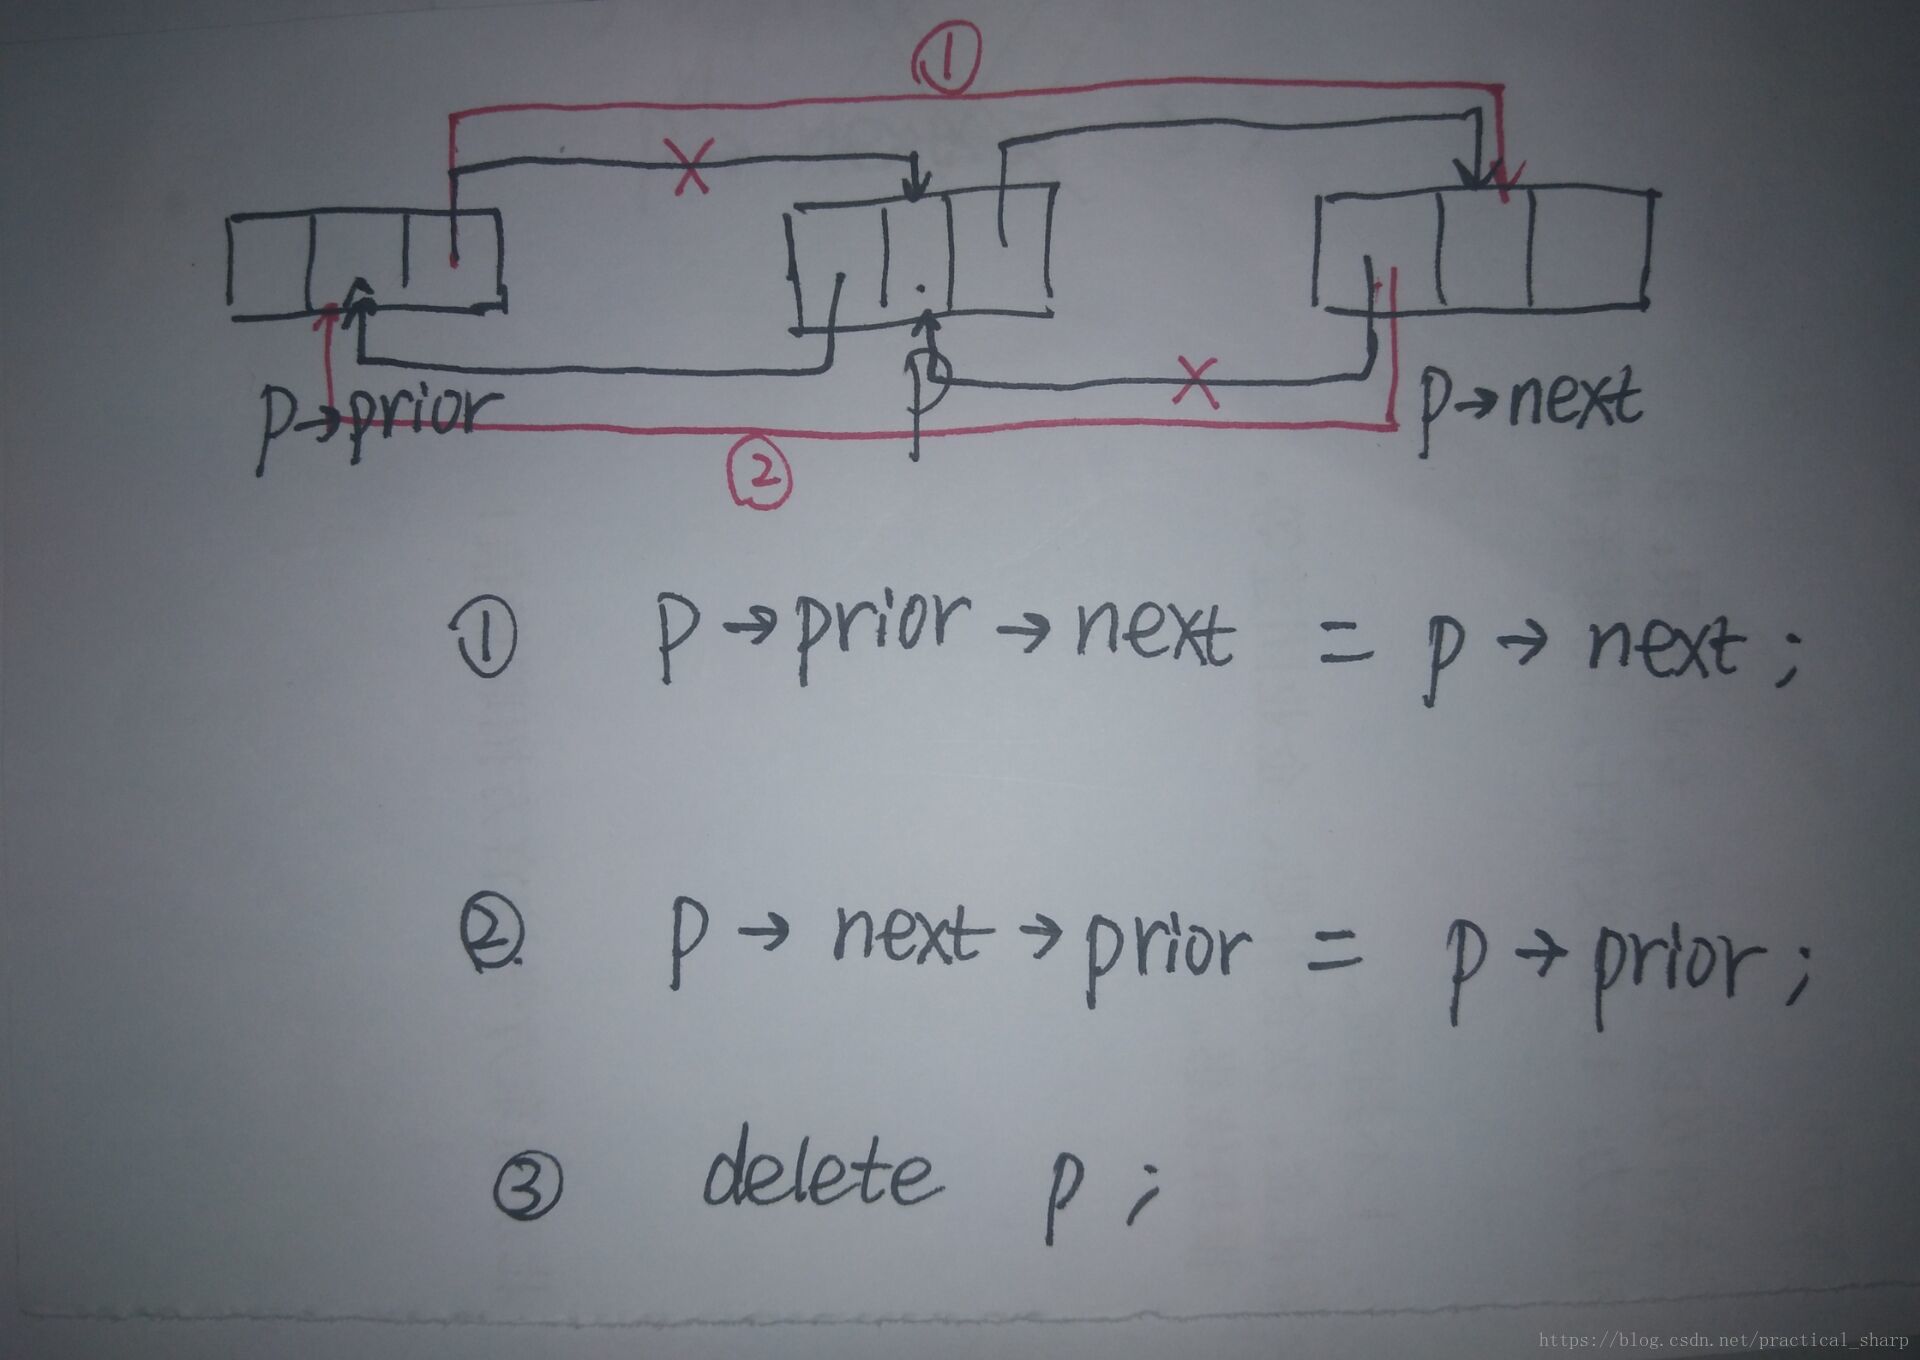 ①
p→prior
p
p→next
②
① p→prior→next = p→next;
② p→next→prior = p→prior;
③ delete p;
https://blog.csdn.net/practical_sharp